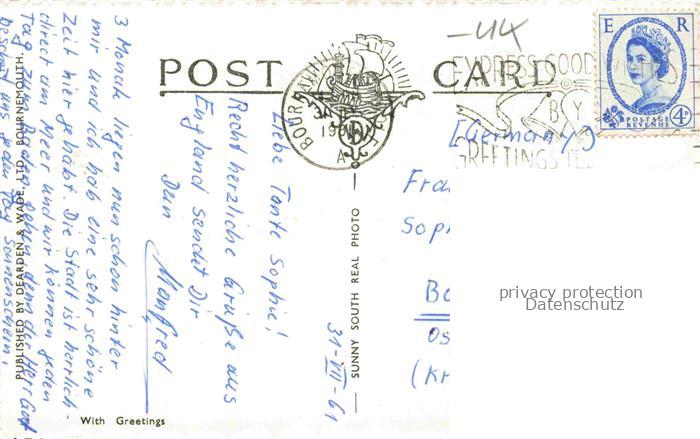 POST CARD
-44
E R
POSTAGE
REVENUE
4D
BOURNEMOUTH
196
A
EXPRESS GOOD
BY
GREETINGS TEL
[Germany]
Liebe Tante Sophie!
Recht herzliche Grüße aus
England sendet Dir
Dein
Manfred
31-VII-61
3 Monate liegen nun schon hinter
mir und ich hab eine sehr schöne
Zeit hier gehabt. Die Stadt ist herrlich
direct am Meer und wir können jeden
Tag zum Baden gehen denn der Herrgott
beschert uns jeden Tag Sonnenschein.
Fra
Soph
Be
Os
(Kr
privacy protection
Datenschutz
SUNNY SOUTH REAL PHOTO
PUBLISHED BY DEARDEN & WADE, LTD. BOURNEMOUTH.
With Greetings